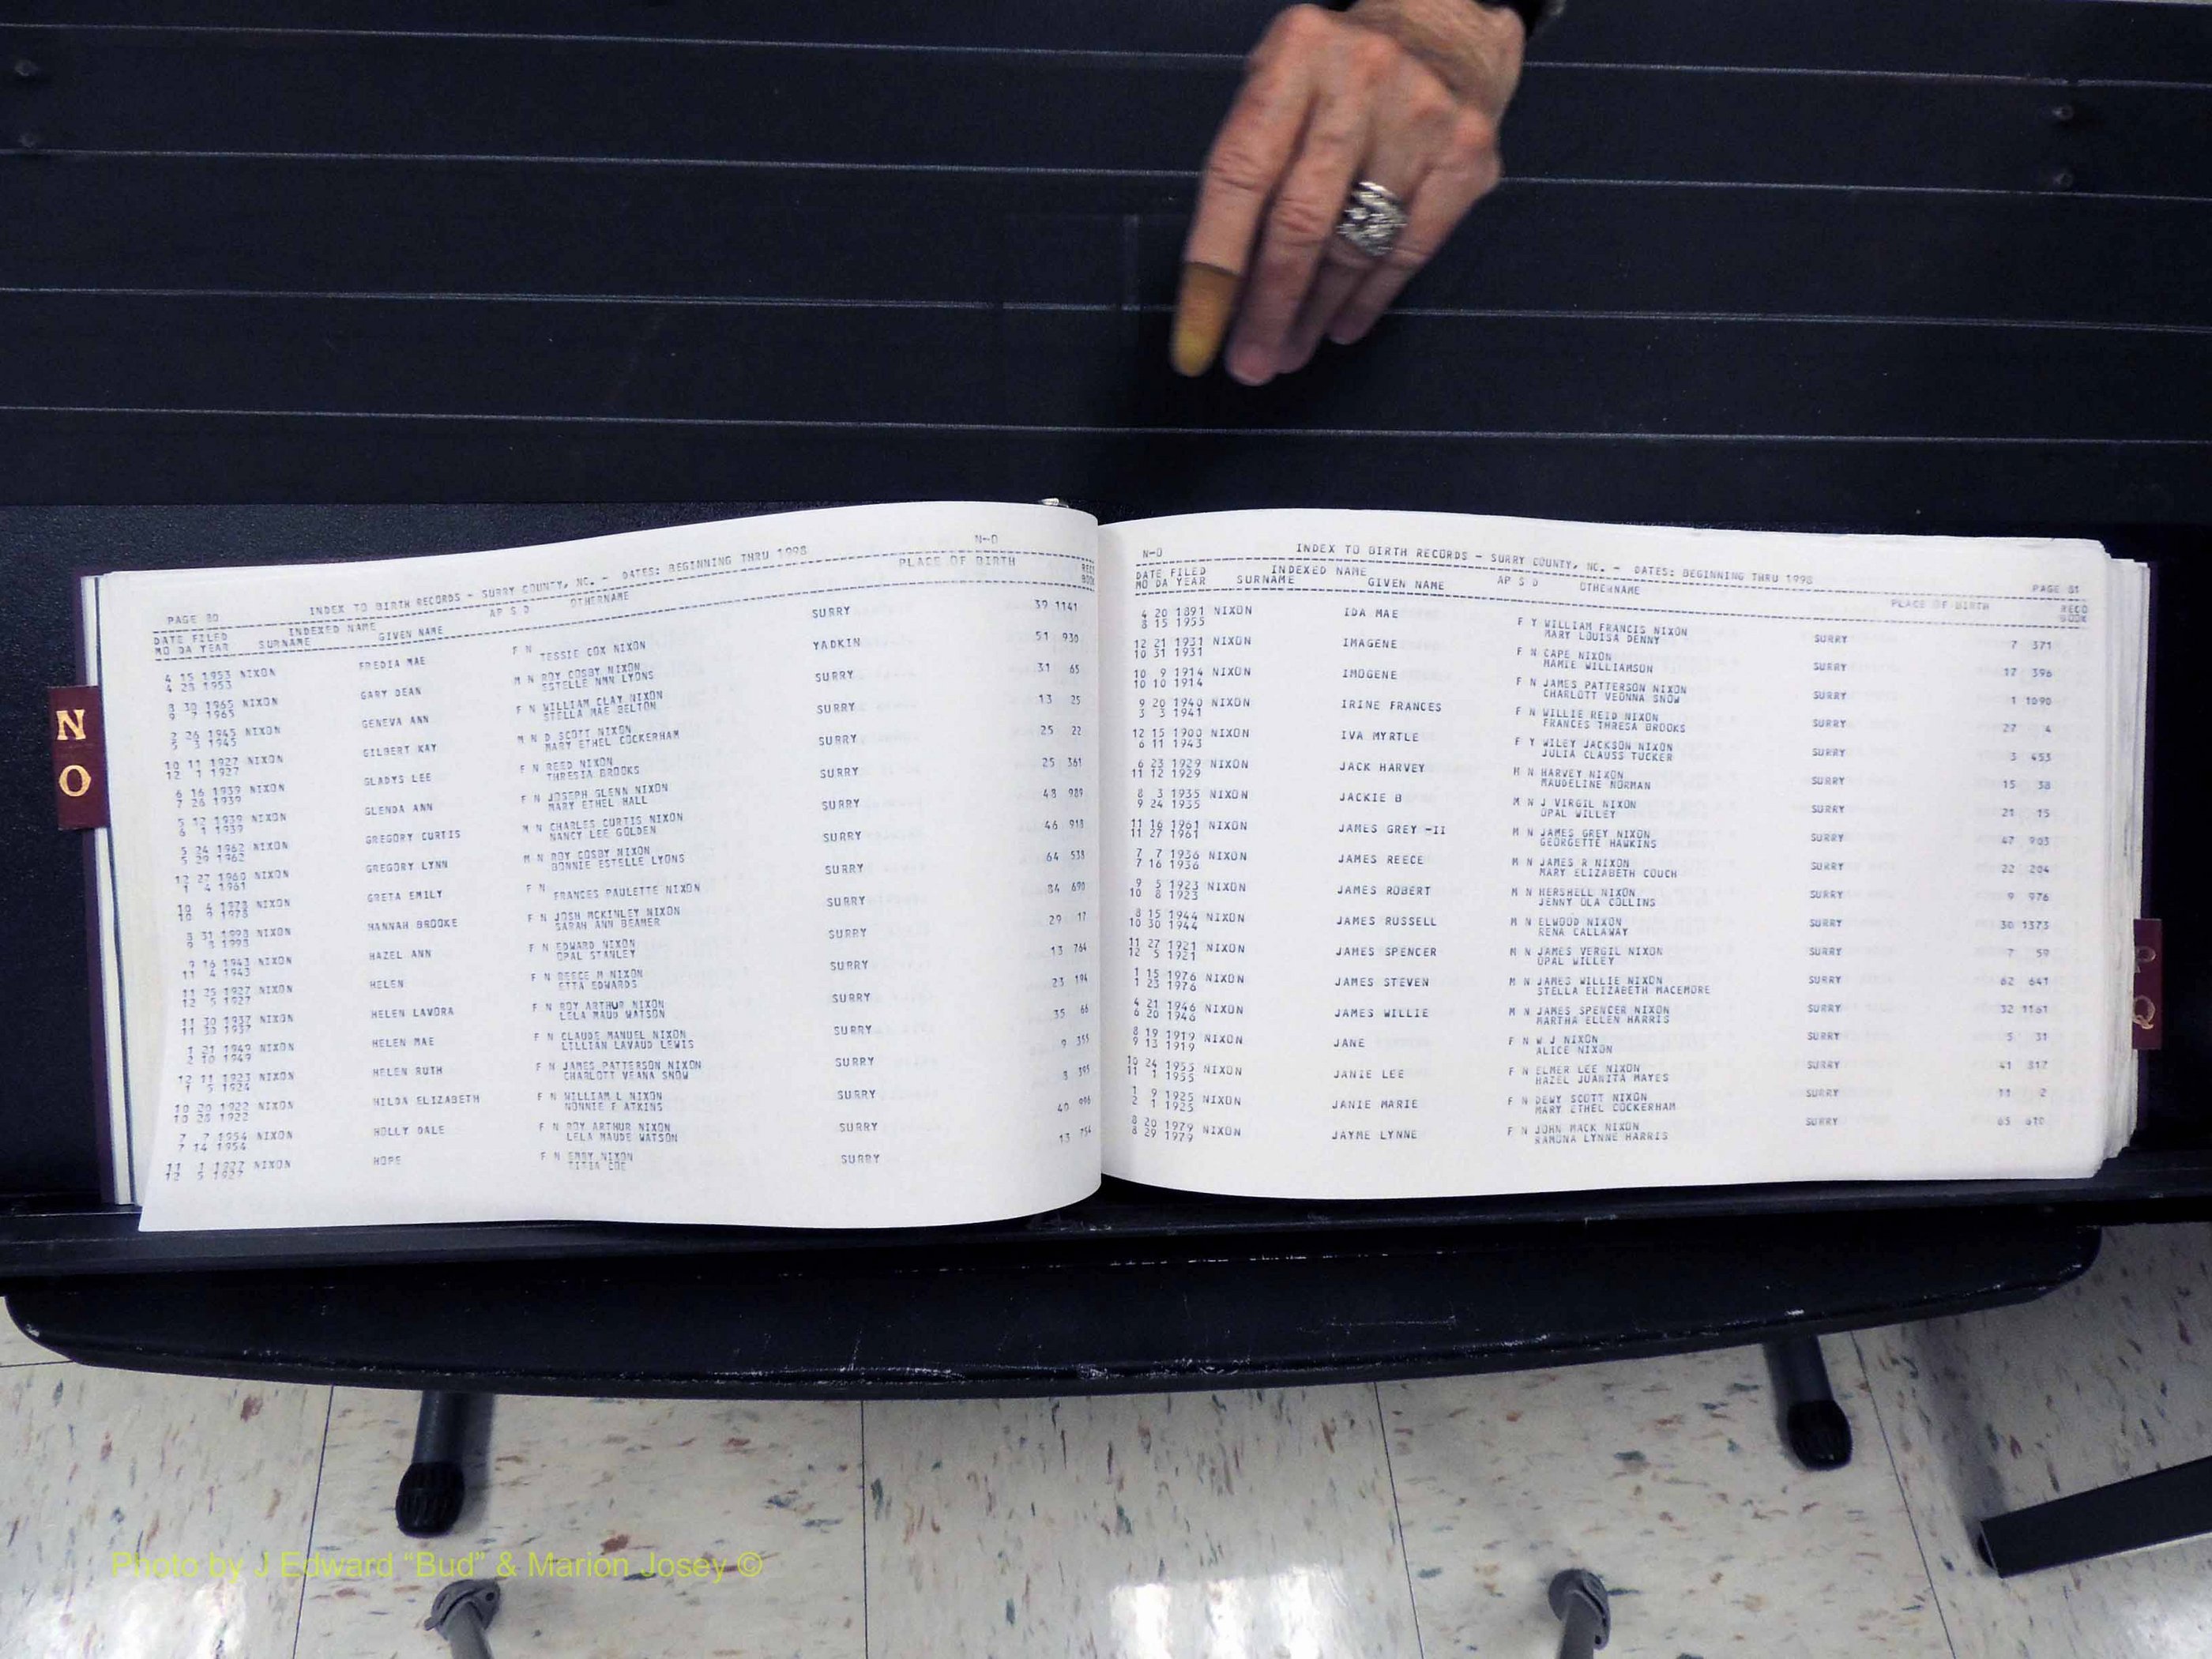 N-O
PAGE 80 INDEX TO BIRTH RECORDS - SURRY COUNTY, NC. - DATES: BEGINNING THRU 1998
DATE FILED INDEXED NAME AP S D OTHERNAME PLACE OF BIRTH
MO DA YEAR SURNAME GIVEN NAME
4 15 1953 NIXON FREDIA MAE F N SURRY 39 1141
4 28 1953 TESSIE COX NIXON
8 30 1965 NIXON GARY DEAN M N ROY COSBY NIXON YADKIN 51 930
9 7 1965 ESTELLE NMN LYONS
2 26 1945 NIXON GENEVA ANN F N WILLIAM CLAY NIXON SURRY 31 65
5 3 1945 STELLA MAE BELTON
10 11 1927 NIXON GILBERT KAY M N D SCOTT NIXON SURRY 13 25
12 1 1927 MARY ETHEL COCKERHAM
6 16 1939 NIXON GLADYS LEE F N REED NIXON SURRY 25 22
7 26 1939 THRESIA BROOKS
5 12 1939 NIXON GLENDA ANN F N JOSEPH GLENN NIXON SURRY 25 361
6 1 1939 MARY ETHEL HALL
5 24 1962 NIXON GREGORY CURTIS M N CHARLES CURTIS NIXON SURRY 48 989
5 29 1962 NANCY LEE GOLDEN
12 27 1960 NIXON GREGORY LYNN M N ROY COSBY NIXON SURRY 46 918
1 4 1961 BONNIE ESTELLE LYONS
10 4 1978 NIXON GRETA EMILY F N SURRY 64 538
10 9 1978 FRANCES PAULETTE NIXON
8 31 1998 NIXON HANNAH BROOKE F N JOSH MCKINLEY NIXON SURRY 84 690
9 8 1998 SARAH ANN BEAMER
9 16 1943 NIXON HAZEL ANN F N EDWARD NIXON SURRY 29 17
11 4 1943 OPAL STANLEY
11 25 1927 NIXON HELEN F N REECE M NIXON SURRY 13 764
12 5 1927 ETTA EDWARDS
11 30 1937 NIXON HELEN LAVORA F N ROY ARTHUR NIXON SURRY 23 194
11 30 1937 LELA MAUD WATSON
1 21 1949 NIXON HELEN MAE F N CLAUDE MANUEL NIXON SURRY 35 66
2 10 1949 LILLIAN LAVAUD LEWIS
12 11 1923 NIXON HELEN RUTH F N JAMES PATTERSON NIXON SURRY 9 355
1 5 1924 CHARLOTT VEANA SNOW
10 20 1922 NIXON HILDA ELIZABETH F N WILLIAM L NIXON SURRY 8 395
10 28 1922 NONNIE F ATKINS
7 7 1954 NIXON HOLLY DALE F N ROY ARTHUR NIXON SURRY 40 996
7 14 1954 LELA MAUDE WATSON
11 1 1927 NIXON HOPE F N NIXON SURRY 13 754
12 5 1927 COE
N-O INDEX TO BIRTH RECORDS - SURRY COUNTY, NC. - DATES: BEGINNING THRU 1998 PAGE 81
DATE FILED INDEXED NAME AP S D OTHERNAME PLACE OF BIRTH RECD
MO DA YEAR SURNAME GIVEN NAME BOOK
4 20 1891 NIXON IDA MAE F Y WILLIAM FRANCIS NIXON SURRY 7 371
8 15 1955 MARY LOUISA DENNY
12 21 1931 NIXON IMAGENE F N CAPE NIXON SURRY 17 396
10 31 1931 MAMIE WILLIAMSON
10 9 1914 NIXON IMOGENE F N JAMES PATTERSON NIXON SURRY 1 1090
10 10 1914 CHARLOTT VEONNA SNOW
9 20 1940 NIXON IRINE FRANCES F N WILLIE REID NIXON SURRY 27 4
3 3 1941 FRANCES THRESA BROOKS
12 15 1900 NIXON IVA MYRTLE F Y WILEY JACKSON NIXON SURRY 3 453
6 11 1943 JULIA CLAUSS TUCKER
6 23 1929 NIXON JACK HARVEY M N HARVEY NIXON SURRY 15 38
11 12 1929 MAUDELINE NORMAN
8 3 1935 NIXON JACKIE B M N J VIRGIL NIXON SURRY 21 15
9 24 1935 OPAL WILLEY
11 16 1961 NIXON JAMES GREY -II M N JAMES GREY NIXON SURRY 47 903
11 27 1961 GEORGETTE HAWKINS
7 7 1936 NIXON JAMES REECE M N JAMES R NIXON SURRY 22 204
7 16 1936 MARY ELIZABETH COUCH
9 5 1923 NIXON JAMES ROBERT M N HERSHELL NIXON SURRY 9 976
10 8 1923 JENNY OLA COLLINS
8 15 1944 NIXON JAMES RUSSELL M N ELWOOD NIXON SURRY 30 1373
10 30 1944 RENA CALLAWAY
11 27 1921 NIXON JAMES SPENCER M N JAMES VERGIL NIXON SURRY 7 59
12 5 1921 OPAL WILLEY
1 15 1976 NIXON JAMES STEVEN M N JAMES WILLIE NIXON SURRY 62 641
1 23 1976 STELLA ELIZABETH MACEMORE
4 21 1946 NIXON JAMES WILLIE M N JAMES SPENCER NIXON SURRY 32 1161
6 20 1946 MARTHA ELLEN HARRIS
8 19 1919 NIXON JANE F N W J NIXON SURRY 5 31
9 13 1919 ALICE NIXON
10 24 1955 NIXON JANIE LEE F N ELMER LEE NIXON SURRY 41 817
11 1 1955 HAZEL JUANITA MAYES
1 9 1925 NIXON JANIE MARIE F N DEWY SCOTT NIXON SURRY 11 2
2 1 1925 MARY ETHEL COCKERHAM
8 20 1979 NIXON JAYME LYNNE F N JOHN MACK NIXON SURRY 65 610
8 29 1979 RAMONA LYNNE HARRIS
N
O
Q
Photo by J Edward “Bud” & Marion Josey ©